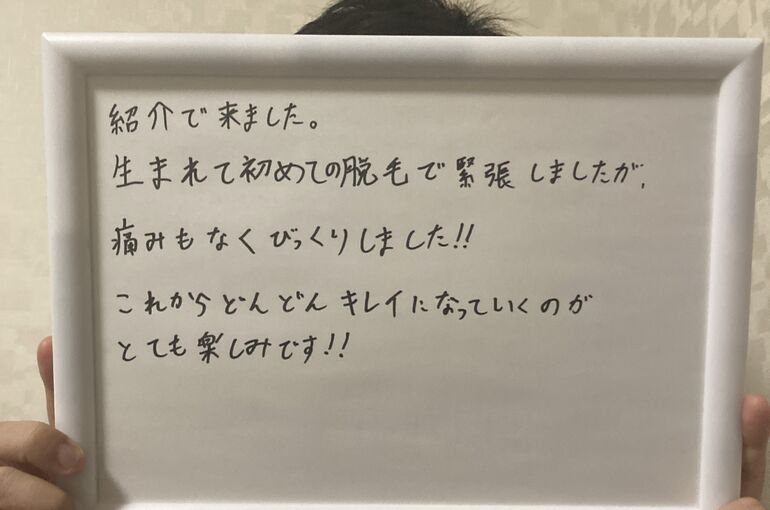 紹介で来ました。
生まれて初めての脱毛で緊張しましたが、
痛みもなくびっくりしました!!
これからどんどんキレイになっていくのが
とても楽しみです!!